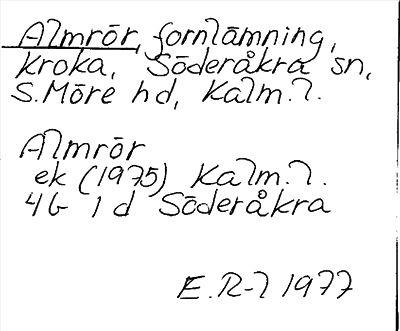 Almrör, fornlämning,
Kroka, Söderåkra sn,
S. Möre hd, Kalm. l.
Almrör
ek (1975) Kalm. l.
4G 1d Söderåkra
E. R-l 1977